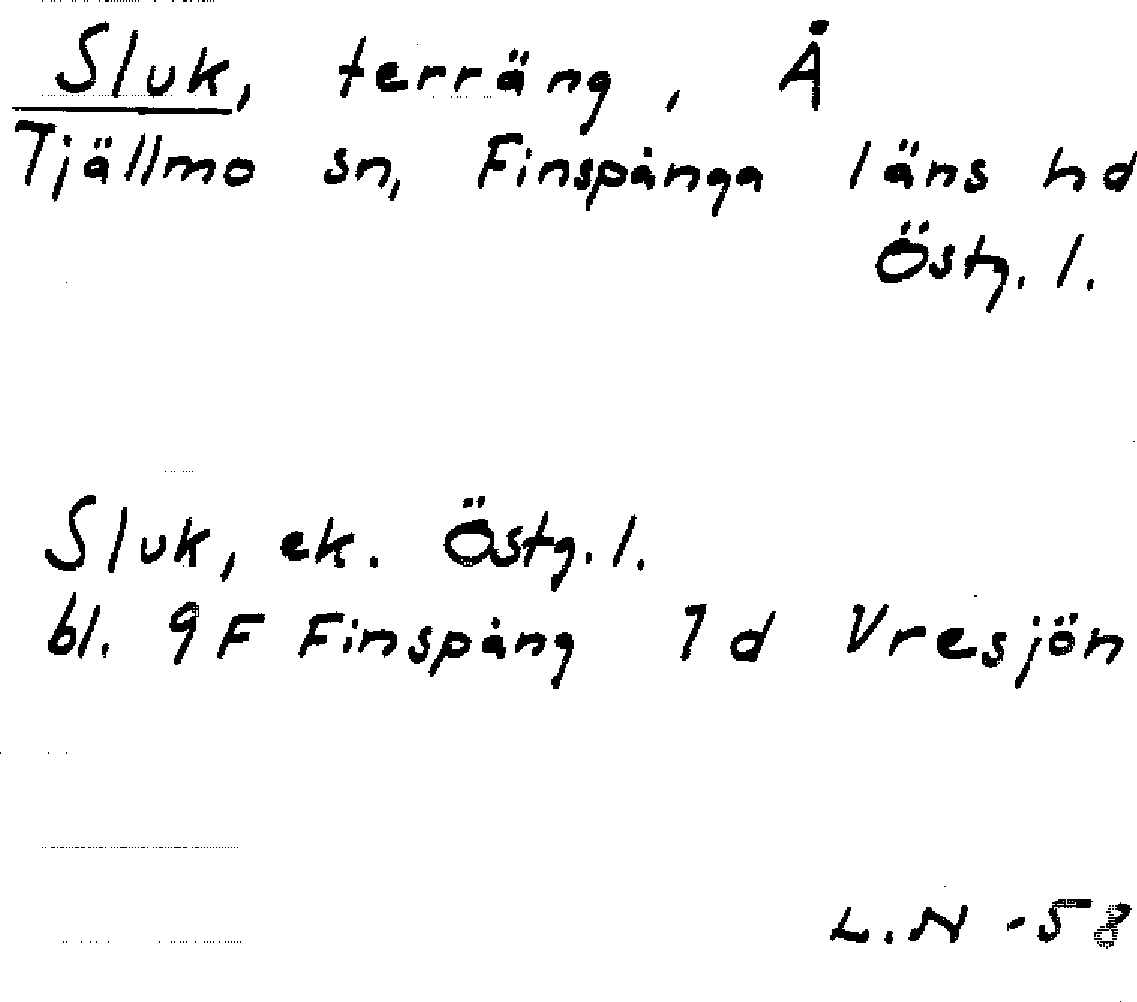 Sluk, terräng, Å
Tjällmo sn, Finspånga läns hd
Östg. l.
Sluk, ek. Östg. l.
bl. 9F Finspång 1d Vresjön
L.N -58